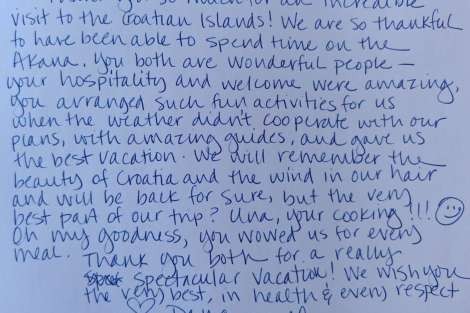 Thank you so much for an incredible
visit to the Croatian Islands! We are so thankful
to have been able to spend time on the
Akana. You both are wonderful people —
your hospitality and welcome were amazing,
you arranged such fun activities for us
when the weather didn't cooperate with our
plans, with amazing guides, and gave us
the best vacation. We will remember the
beauty of Croatia and the wind in our hair
and will be back for sure, but the very
best part of our trip? Una, your cooking!!!
Oh my goodness, you wowed us for every
meal. Thank you both for a really
spectacular vacation! We wish you
the very best, in health & every respect